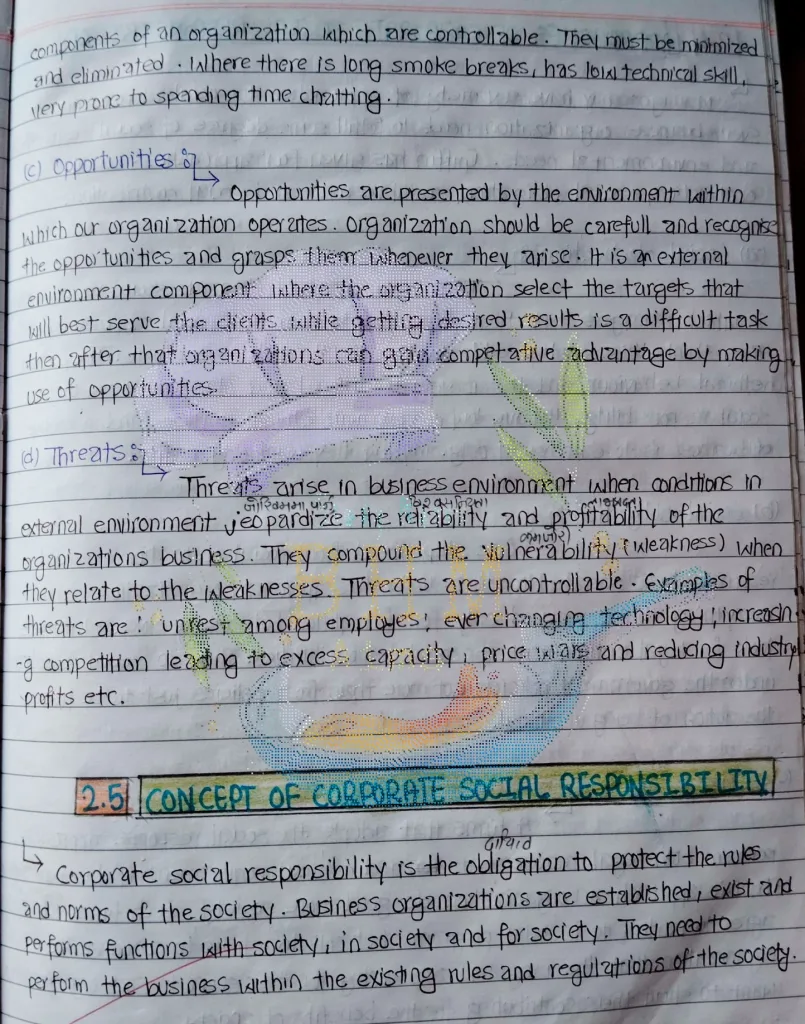 components of an organization which are controllable. They must be minimized
and eliminated. Where there is long smoke breaks, has low technical skill,
very prone to spending time chatting.
(c) Opportunities :
Opportunities are presented by the environment within
which our organization operates. Organization should be carefull and recognise
the opportunities and grasps them whenever they arise. It is an external
environment component where the organization select the targets that
will best serve the clients while getting desired results is a difficult task
then after that organizations can gain competative advantage by making
use of opportunities.
(d) Threats :
Threats arise in business environment when conditions in
external environment jeopardize the reliability and profitability of the
organizations business. They compound the vulnerability (weakness) when
they relate to the weaknesses. Threats are uncontrollable. Examples of
threats are : unrest among employes; ever changing technology; increasin
-g competition leading to excess capacity, price wars and reducing industry
profits etc.
BHM
2.5 CONCEPT OF CORPORATE SOCIAL RESPONSIBILITY
Corporate social responsibility is the obligation to protect the rules
and norms of the society. Business organizations are established, exist and
performs functions with society, in society and for society. They need to
perform the business within the existing rules and regulations of the society.